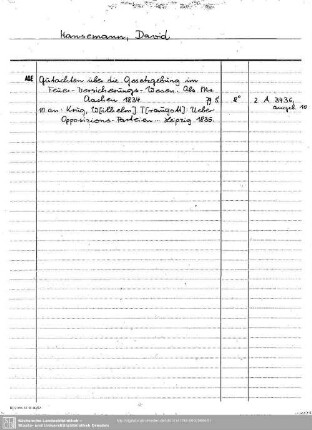 Hansemann, David
ADE Gutachten über die Gesetzgebung im
Feuer-Versicherungs-Wesen. Als Ms.
Aachen 1834. 8° 2 A 3936,
angeb 10
an: Krug, W[ilhelm] T[raugott]: Ueber
Oppositions-Parteien... Leipzig 1835.
Sächsische Landesbibliothek -
Staats- und Universitätsbibliothek Dresden